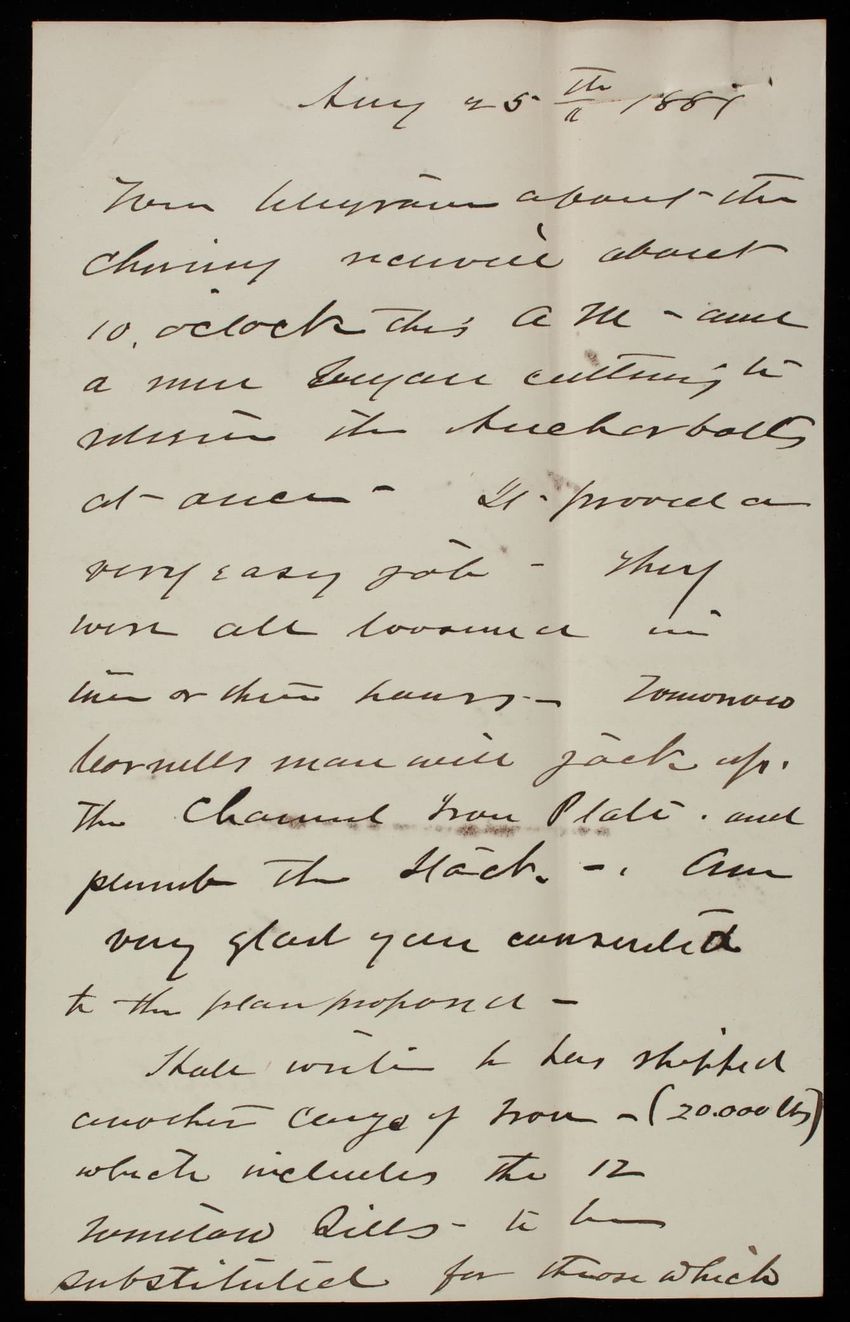 Aug 25th 1881
Your telegram about the
chimney received about
10, o'clock this A M - and
a man began cutting to
release the Anchor bolts
at once - It proved a
very easy job - They
were all loosened in
two or three hours - Tomorrow
Cornells man will jack up.
the Channel Iron Plate. and
plumb the Stack. - Am
very glad you consented
to the plan proposed -
Hale writes he has shipped
another cargo of Iron - (20.000 lbs)
which includes the 12
window Sills - to be
substituted for those which